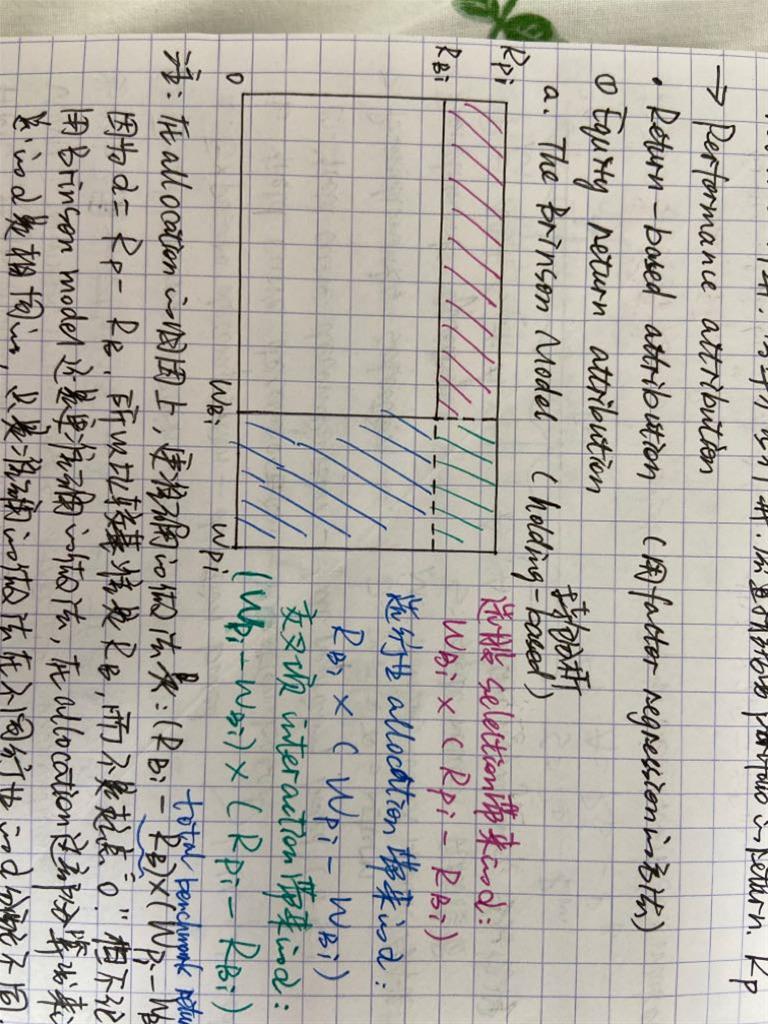 → Performance attribution
• Return-based attribution (用 factor regression的方法)
① Equity return attribution
a. The Brinson Model (holding-based)
持仓分析
RPi
RBi
0
WBi
WPi
选股 selection带来的α:
WBi × (RPi - RBi)
选行业 allocation 带来的α:
RBi × (WPi - WBi)
交叉项 interaction带来的α:
(WPi - WBi) × (RPi - RBi)
total benchmark return
注: 在allocation的图上, 更准确的做法是: (RBi - RB) × (WPi - WB
因为α = RP - RB, 所以比较基准是RB, 而不是起点"0"但不论
用Brinson model还是更准确的做法, 在allocation这部分算出来
总的α是相同的, 只是准确的做法在不同行业的α分配不同